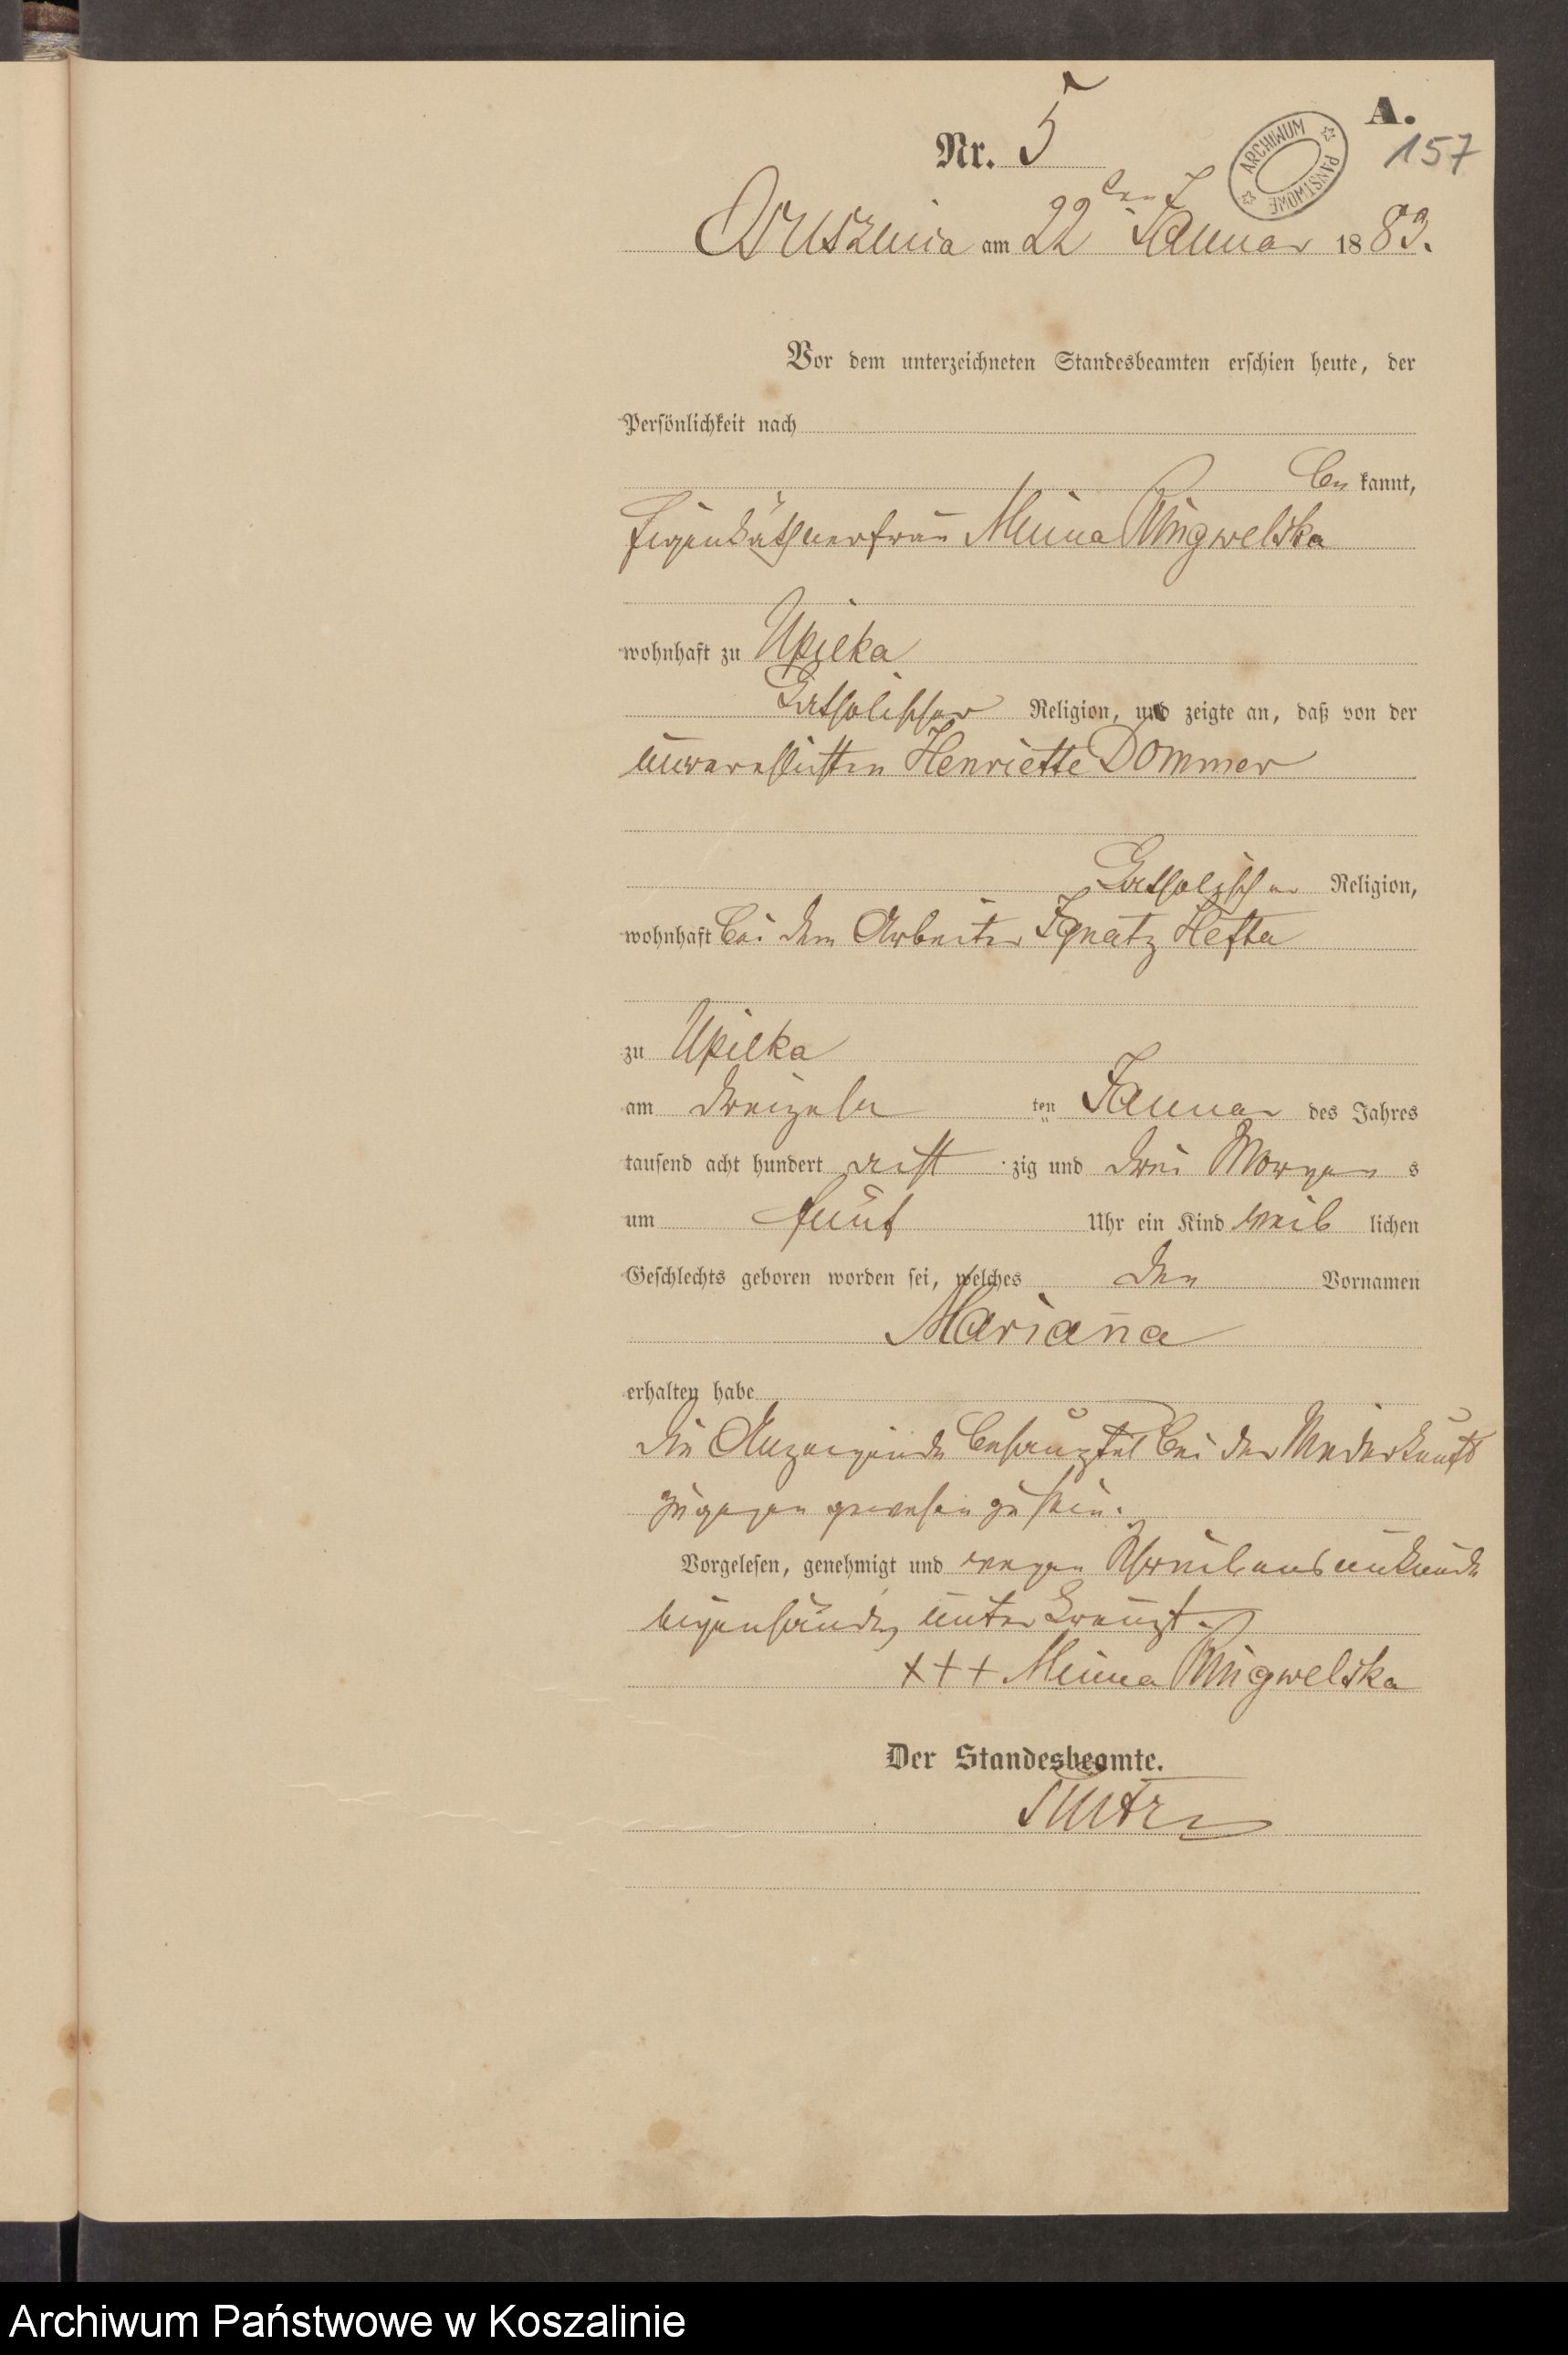 A.
Nr. 5
157
ARCHIWUM PAŃSTWOWE
am 22 ten Januar 1883.
Vor dem unterzeichneten Standesbeamten erschien heute, der
Persönlichkeit nach
be kannt,
Eigenkäthnerfrau Minna Ringwelska
wohnhaft zu Upilka
katholischer Religion, und zeigte an, daß von der
unverehlichten Henriette Dommer
katholischer Religion,
wohnhaft bei dem Arbeiter Ignatz Hefta
zu Upilka
am dreizehn ten Januar des Jahres
tausend acht hundert acht zig und drei Morgen s
um fünf Uhr ein Kind weib lichen
Geschlechts geboren worden sei, welches den Vornamen
Marianna
erhalten habe
Die Anzeigende behauptet bei der Niederkunft
zugegen gewesen zu sein.
Vorgelesen, genehmigt und wegen Schreibensunkunde
eigenhändig unterkreuzt.
+++ Minna Ringwelska
Der Standesbeamte.
Archiwum Państwowe w Koszalinie